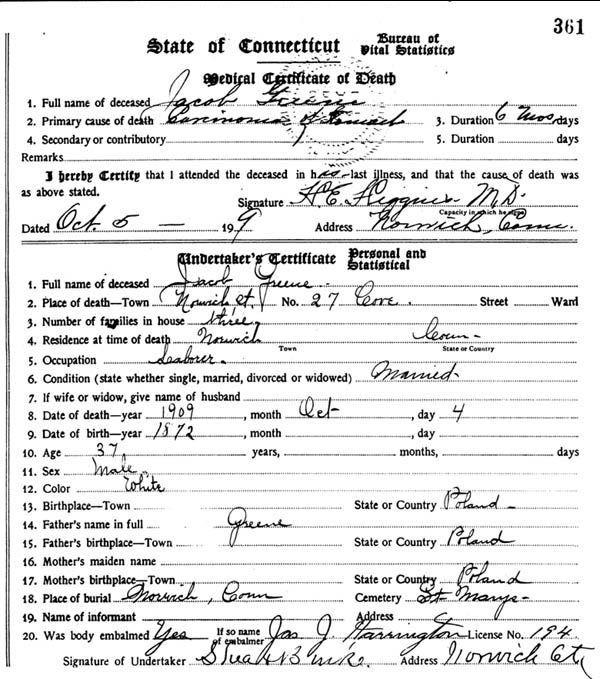 361
State of Connecticut Bureau of Vital Statistics
Medical Certificate of Death
1. Full name of deceased Jacob Greene
2. Primary cause of death Carcinoma of Stomach 3. Duration 6 Mos days
4. Secondary or contributory 5. Duration days
Remarks
I hereby Certify that I attended the deceased in his last illness, and that the cause of death was
as above stated. Signature H.E. Higgins M.D.
Capacity in which he signs
Dated Oct. 5 190 9 Address Norwich, Conn.
Undertaker's Certificate Personal and Statistical
1. Full name of deceased Jacob Greene
2. Place of death—Town Norwich Ct No. 27 Cove. Street Ward
3. Number of families in house three
4. Residence at time of death Norwich Conn-
Town State or Country
5. Occupation Laborer.
6. Condition (state whether single, married, divorced or widowed) Married-
7. If wife or widow, give name of husband
8. Date of death—year 1909, month Oct-, day 4
9. Date of birth—year 1872, month , day
10. Age 37 years, months, days
11. Sex Male.
12. Color White
13. Birthplace—Town State or Country Poland-
14. Father's name in full Greene
15. Father's birthplace—Town State or Country Poland
16. Mother's maiden name
17. Mother's birthplace—Town State or Country Poland
18. Place of burial Norwich, Conn Cemetery St Marys-
19. Name of informant Address
20. Was body embalmed Yes If so name of embalmer Jas J. Harrington License No. 194
Signature of Undertaker Shea & Burke. Address Norwich Ct